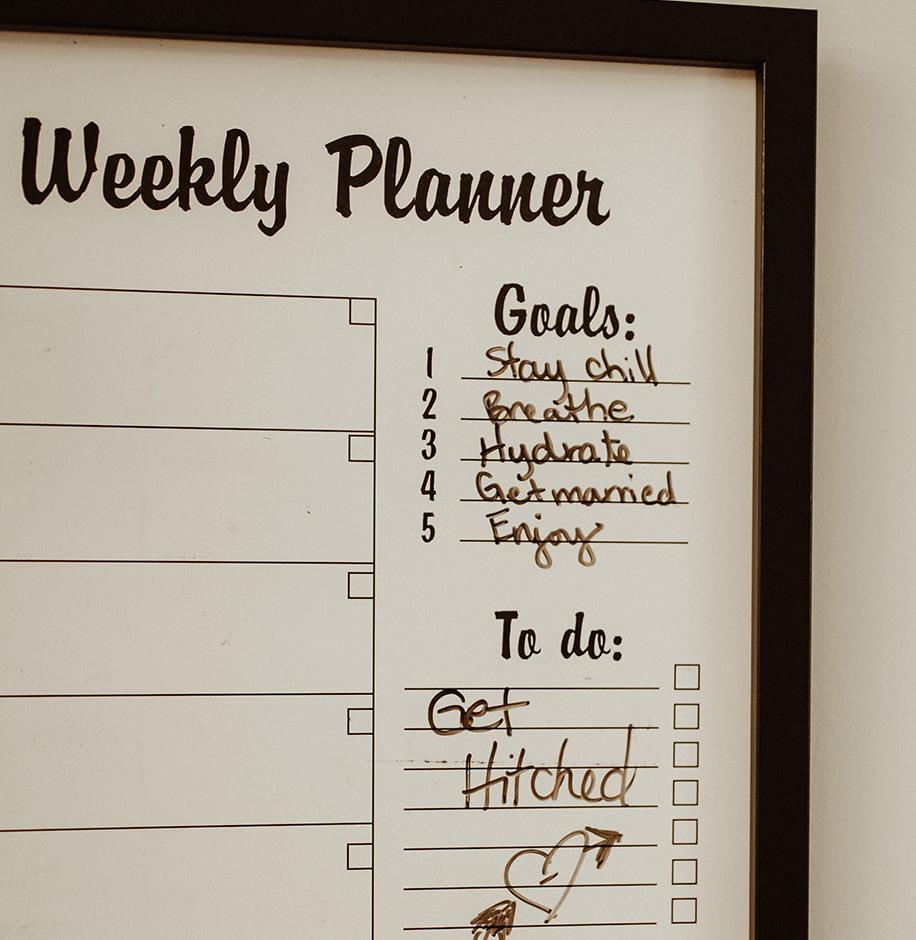 Weekly Planner
Goals:
1 Stay chill
2 Breathe
3 Hydrate
4 Get married
5 Enjoy
To do:
Get
Hitched